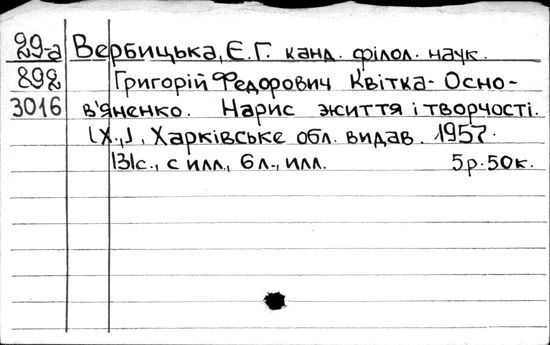 29-а Вербицька, Є.Г. канд. філол. наук.
892 Григорій Федорович Квітка-Осно-
3016 в'яненко. Нарис життя і творчості.
[Х.,], Харківське обл. видав. 1957.
131с., с илл., 6л., илл. 5р.50к.